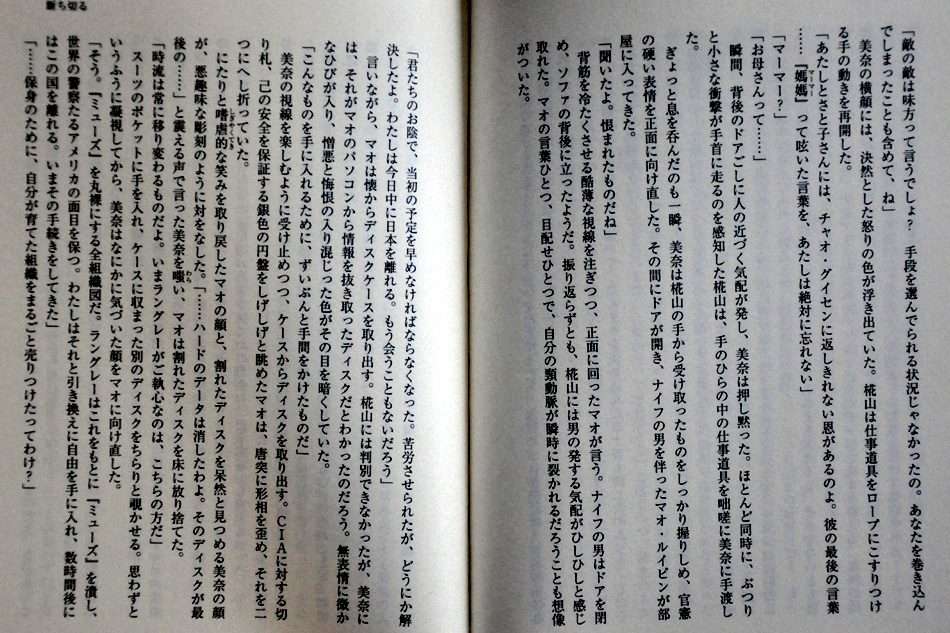 断ち切る
「敵の敵は味方って言うでしょ？　手段を選んでられる状況じゃなかったの。あなたを巻き込ん
でしまったことも含めて、ね」
　美奈の横顔には、決然とした怒りの色が浮き出ていた。椛山は仕事道具をロープにこすりつけ
る手の動きを再開した。
「あたしとさと子さんには、チャオ・グイセンに返しきれない恩があるのよ。彼の最後の言葉
……『媽媽』って呟いた言葉を、あたしは絶対に忘れない」
「マーマー？」
「お母さんって……」
　瞬間、背後のドアごしに人の近づく気配が発し、美奈は押し黙った。ほとんど同時に、ぶつり
と小さな衝撃が手首に走るのを感知した椛山は、手のひらの中の仕事道具を咄嗟に美奈に手渡し
た。
　ぎょっと息を呑んだのも一瞬、美奈は椛山の手から受け取ったものをしっかり握りしめ、官憲
の硬い表情を正面に向け直した。その間にドアが開き、ナイフの男を伴ったマオ・ルイピンが部
屋に入ってきた。
「聞いたよ。恨まれたものだね」
　背筋を冷たくさせる酷薄な視線を注ぎつつ、正面に回ったマオが言う。ナイフの男はドアを閉
め、ソファの背後に立ったようだ。振り返らずとも、椛山には男の発する気配がひしひしと感じ
取れた。マオの言葉ひとつ、目配せひとつで、自分の頸動脈が瞬時に裂かれるだろうことも想像
がついた。
「君たちのお陰で、当初の予定を早めなければならなくなった。苦労させられたが、どうにか解
決したよ。わたしは今日中に日本を離れる。もう会うこともないだろう」
　言いながら、マオは懐からディスクケースを取り出す。椛山には判別できなかったが、美奈に
は、それがマオのパソコンから情報を抜き取ったディスクだとわかったのだろう。無表情に微か
なひびが入り、憎悪と悔恨の入り混じった色がその目を暗くしていた。
「こんなものを手に入れるために、ずいぶんと手間をかけたものだ」
　美奈の視線を楽しむように受け止めつつ、ケースからディスクを取り出す。ＣＩＡに対する切
り札、己の安全を保証する銀色の円盤をしげしげと眺めたマオは、唐突に形相を歪め、それを二
つにへし折っていた。
　にたりと嗜虐的な笑みを取り戻したマオの顔と、割れたディスクを呆然と見つめる美奈の顔
が、悪趣味な彫刻のように対をなした。「……ハードのデータは消したわよ。そのディスクが最
後の……」と震える声で言った美奈を嗤い、マオは割れたディスクを床に放り捨てた。
「時流は常に移り変わるものだよ。いまラングレーがご執心なのは、こちらの方だ」
　スーツのポケットに手を入れ、ケースに収まった別のディスクをちらりと覗かせる。思わずと
いうふうに凝視してから、美奈はなにかに気づいた顔をマオに向け直した。
「そう。『ミューズ』を丸裸にする全組織図だ。ラングレーはこれをもとに『ミューズ』を潰し、
世界の警察たるアメリカの面目を保つ。わたしはそれと引き換えに自由を手に入れ、数時間後に
はこの国を離れる。いまその手続きをしてきた」
「……保身のために、自分が育てた組織をまるごと売りつけたってわけ？」